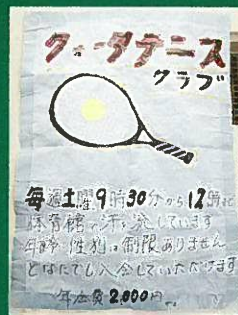 クォータテニス
クラブ
毎週土曜9時30分から12時迄
体育館で汗を流しています
年齢 性別は制限ありません
どなたでも入会していただけます
年会費2,000円